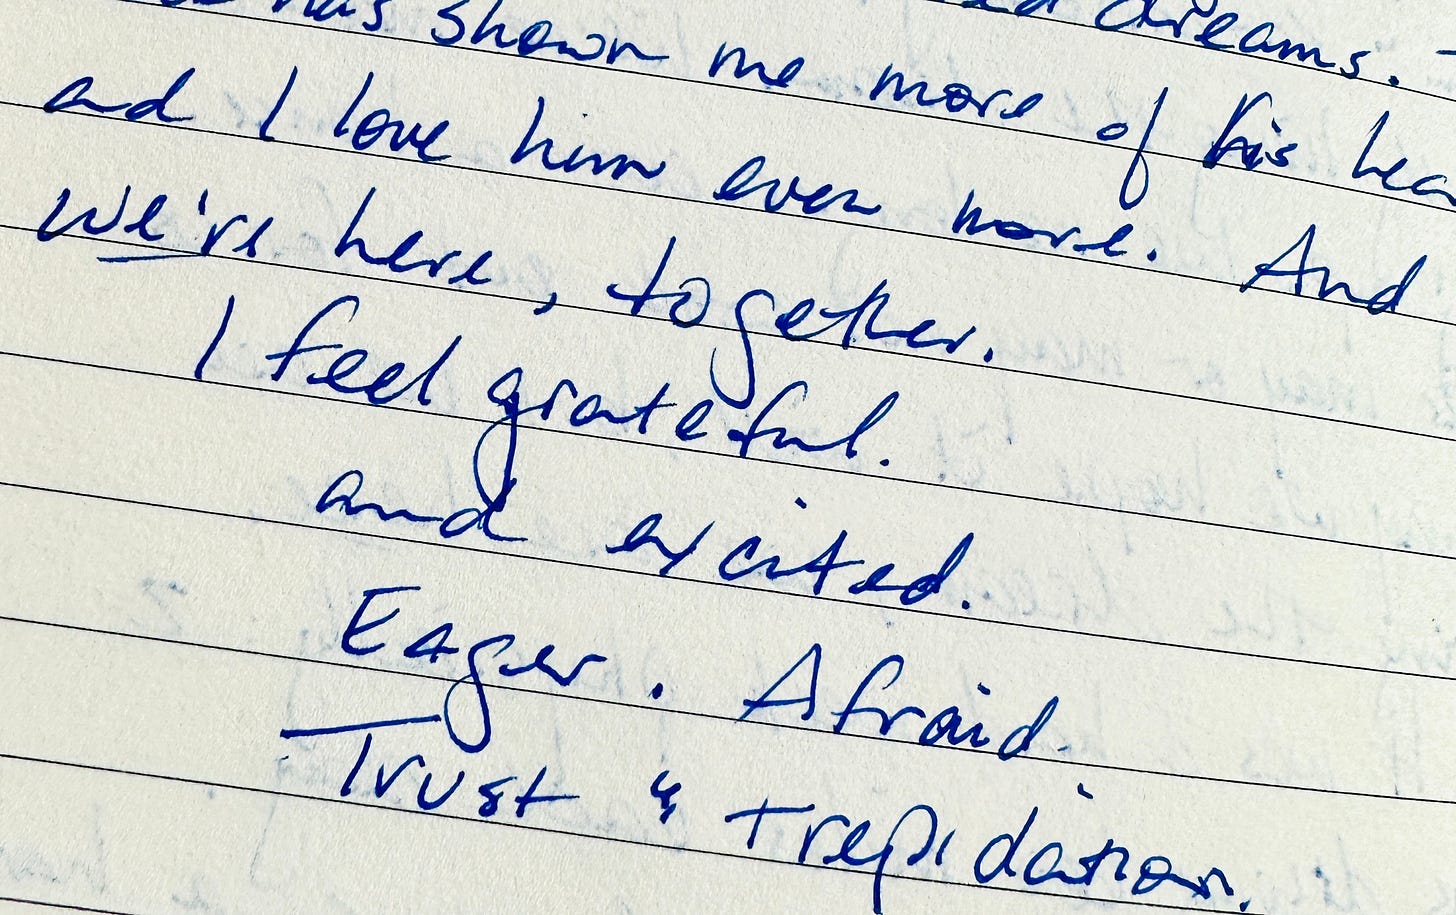 dreams.
has shown me more of his
and I love him even more. And
we're here, together.
I feel grateful.
and excited.
Eager. Afraid.
Trust & trepidation.